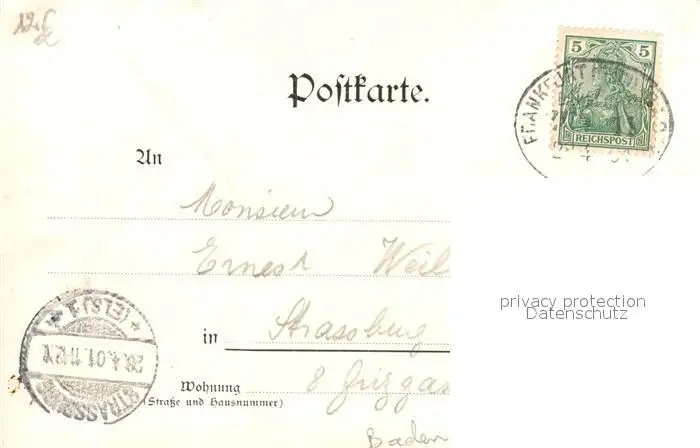 5 5
REICHSPOST
Postkarte.
An
Monsieur
Ernest Weil
privacy protection
Datenschutz
in Strassburg
* (ELS) 1 *
28.4.01.11-12V.
STRASSBURG
Wohnung
(Straße und Hausnummer)
8
Baden